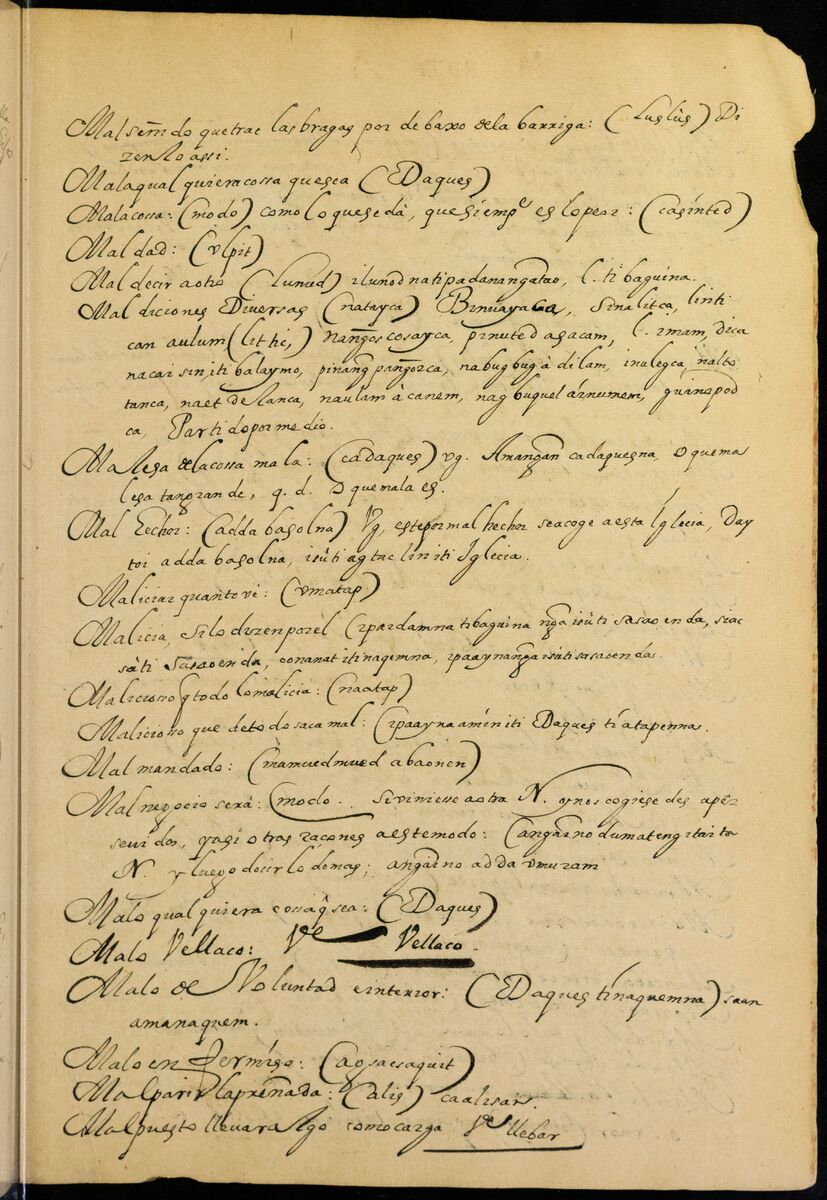 Mal señido que trae las bragas por de baxo de la barriga: (Luslùs) Di
zenlo assi.
Mala qual quiera cossa que sea (Daques)
Mala cossa: (modo) como lo que se dà, que siempe es lo peor: (casinted)
Maldad: (vlpit)
Mal decir a otro (Lunud) ilunod natipadanangatao, l. ti baguina.
Mal diciones Diversas (natayca) Binuayaca, Sinalitca, liniti
can aulum (littic,) nangoscosayca, pinuted agacam, l. imam, dica
nacaisiniti balaymo, pinang pangorca, nabugbug à dilam, inulegca, nalto
tanca, naet delanca, naulam à canem, nag buquel árnumem, guinspod
ca, Partido por medio.
Malesa de la cossa mala: (cadaques) vg. Amangan cadaquesna, o que ma
lesa tan grande, q. d. o que mala es.
Mal Echor: (adda basolna) Vg, este por mal hechor se acoge a esta Iglecia, Day
toi adda basolna, isúti agtac liniti Iglecia.
Maliciar quanto vè: (vmatap)
Malicia, si lo dizen por el (ipardamna tibaguina nga isùti sasaoenda, siac
sáti sasaoenda, conanat itinaqemna, ipaaynanga isúti sasaoenda.
Malicioso q̃ todo lo malicia: (naatap)
Malicioso que de todo saca mal: (ipaayna amin iti Daques tiatapenna.
Mal mandado: (mamuedmued abaonen)
Mal negocio será: (modo. Si viniesse aora N. y nos cogiese des aper
seuidos, y asi otras raçones a este modo: (angaino dumateng itaita
N. y luego decir lo demas; angaino adda vmuram
Malo qual quiera cossa q̃ sea: (Daques)
Malo Vellaco: Ve Vellaco.
Malo de Voluntad e interior: (Daques tinaquemna) saan
amanaquem.
Malo en fermiso: (agsacsaquit)
Mal parir la preñada: (alis) caalisan.
Mal puesto llevar algo como carga Ve llebar